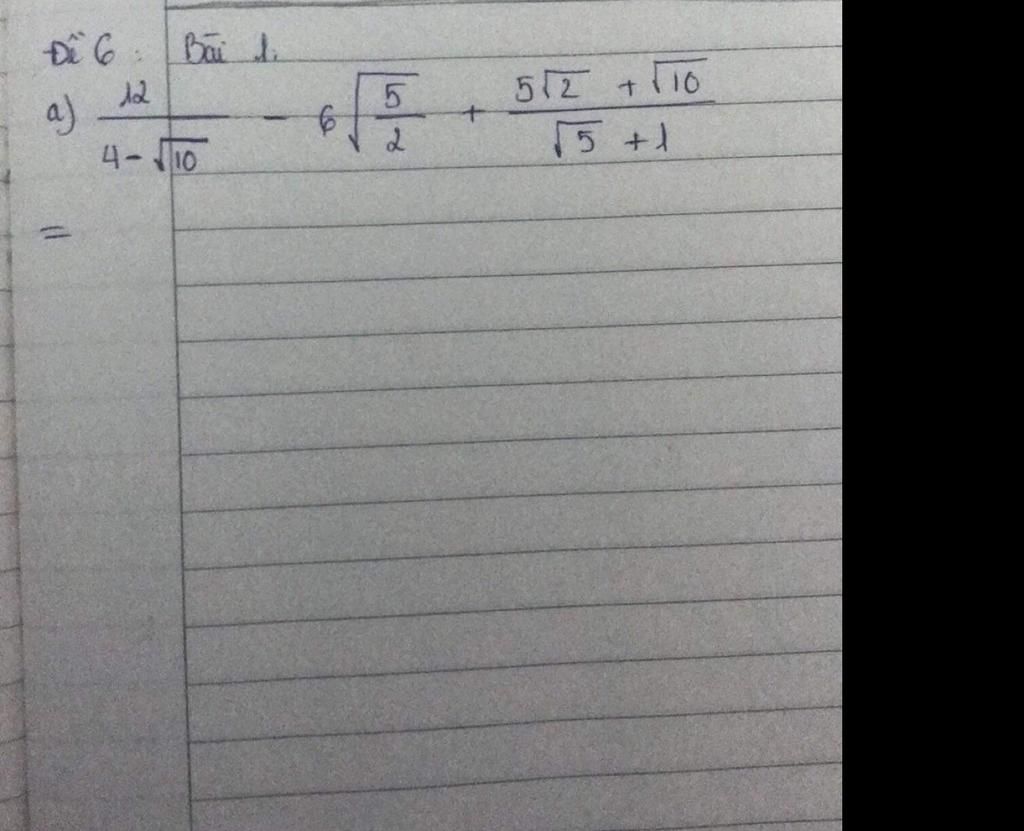 Đề 6 : Bài 1.
a) 12/(4 - √10) - 6√(5/2) + (5√2 + √10)/(√5 + 1)
=